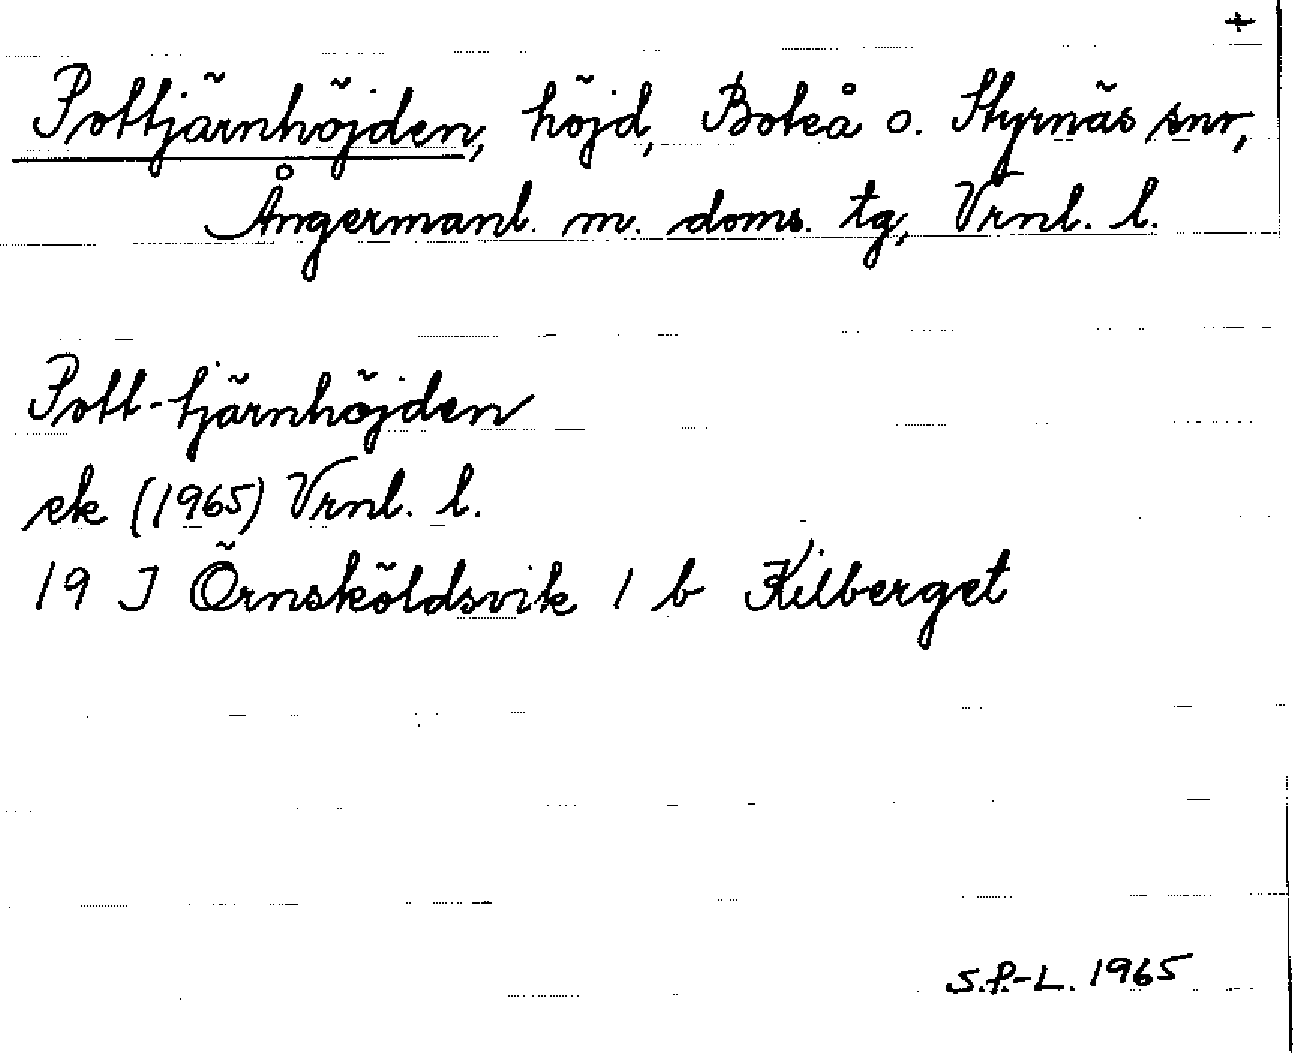 +
Pottjärnhöjden, höjd, Boteå o. Styrnäs snr,
Ångermanl. m. doms. tg, Vrnl. l.
Pott-tjärnhöjden
ek (1965) Vrnl. l.
19 J Örnsköldsvik 1 b Kilberget
S.P.-L. 1965